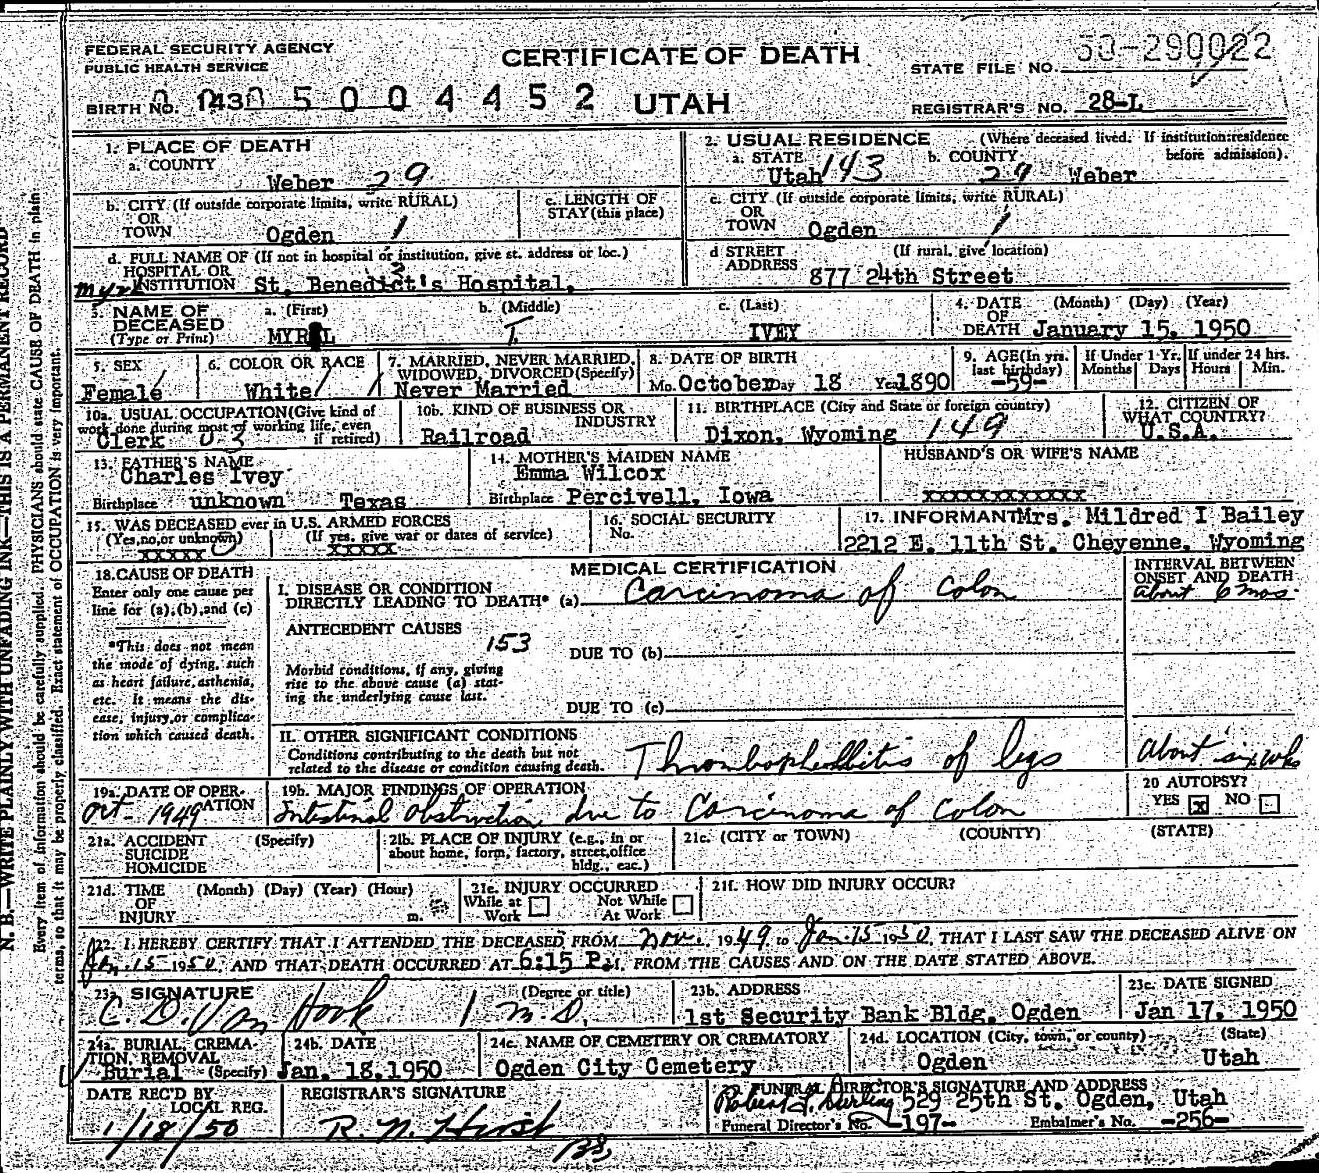 FEDERAL SECURITY AGENCY
PUBLIC HEALTH SERVICE
CERTIFICATE OF DEATH
STATE FILE NO. 50-290022
BIRTH NO. 1430 5 0 0 4 4 5 2
UTAH
REGISTRAR'S NO. 28-L
1. PLACE OF DEATH
a. COUNTY
Weber 29
2. USUAL RESIDENCE (Where deceased lived. If institution:residence before admission).
a. STATE Utah 143 b. COUNTY 29 Weber
b. CITY (If outside corporate limits, write RURAL)
OR
TOWN Ogden 1
c. LENGTH OF
STAY (this place)
c. CITY (If outside corporate limits, write RURAL)
OR
TOWN Ogden 1
d. FULL NAME OF (If not in hospital or institution, give st. address or loc.)
HOSPITAL OR
INSTITUTION St. Benedict's Hospital.
d STREET (If rural, give location)
ADDRESS 877 24th Street
3. NAME OF
DECEASED
(Type or Print)
a. (First) b. (Middle) c. (Last)
T. IVEY
4. DATE (Month) (Day) (Year)
OF
DEATH January 15, 1950
5. SEX
Female
6. COLOR OR RACE
White
7. MARRIED, NEVER MARRIED,
WIDOWED, DIVORCED (Specify)
Never Married
8. DATE OF BIRTH
Mo. October Day 18 Yea 1890
9. AGE (In yrs.
last birthday)
-59-
If Under 1 Yr.
Months Days
If under 24 hrs.
Hours Min.
10a. USUAL OCCUPATION (Give kind of
work done during most of working life, even
if retired)
Clerk 03
10b. KIND OF BUSINESS OR
INDUSTRY
Railroad
11. BIRTHPLACE (City and State or foreign country)
Dixon, Wyoming 149
12. CITIZEN OF
WHAT COUNTRY?
U.S.A.
13. FATHER'S NAME
Charles Ivey
Birthplace unknown Texas
14. MOTHER'S MAIDEN NAME
Emma Wilcox
Birthplace Percivell, Iowa
HUSBAND'S OR WIFE'S NAME
xxxxxxxxxxxx
15. WAS DECEASED ever in U.S. ARMED FORCES
(Yes, no, or unknown) (If yes, give war or dates of service)
xxxxx 0 xxxxx
16. SOCIAL SECURITY
No.
17. INFORMANT Mrs. Mildred I Bailey
2212 E. 11th St. Cheyenne, Wyoming
18. CAUSE OF DEATH
Enter only one cause per
line for (a), (b), and (c)
*This does not mean
the mode of dying, such
as heart failure, asthenia,
etc. It means the dis-
ease, injury, or complica-
tion which caused death.
MEDICAL CERTIFICATION
I. DISEASE OR CONDITION
DIRECTLY LEADING TO DEATH* (a) Carcinoma of Colon
INTERVAL BETWEEN
ONSET AND DEATH
About 6 mos.
ANTECEDENT CAUSES
153
DUE TO (b)
Morbid conditions, if any, giving
rise to the above cause (a) stat-
ing the underlying cause last.
DUE TO (c)
II. OTHER SIGNIFICANT CONDITIONS
Conditions contributing to the death but not
related to the disease or condition causing death.
Thrombophelbitis of legs
About six wks
19a. DATE OF OPER-
ATION
Oct - 1949
19b. MAJOR FINDINGS OF OPERATION
Intestinal obstruction due to Carcinoma of Colon
20 AUTOPSY?
YES x NO
21a. ACCIDENT (Specify)
SUICIDE
HOMICIDE
21b. PLACE OF INJURY (e.g., in or
about home, form, factory, street, office
bldg., eac.)
21c. (CITY or TOWN) (COUNTY) (STATE)
21d. TIME (Month) (Day) (Year) (Hour)
OF
INJURY m.
21e. INJURY OCCURRED
While at Work Not While At Work
21f. HOW DID INJURY OCCUR?
22. I HEREBY CERTIFY THAT I ATTENDED THE DECEASED FROM Nov. 1949 to Jan 15 1950, THAT I LAST SAW THE DECEASED ALIVE ON
Jan. 15 1950, AND THAT DEATH OCCURRED AT 6:15 P.M. FROM THE CAUSES AND ON THE DATE STATED ABOVE.
23a. SIGNATURE (Degree or title)
C. D. Van Hook M.D.
23b. ADDRESS
1st Security Bank Bldg. Ogden
23c. DATE SIGNED
Jan 17, 1950
24a. BURIAL, CREMA-
TION, REMOVAL
(Specify)
Burial
24b. DATE
Jan. 18, 1950
24c. NAME OF CEMETERY OR CREMATORY
Ogden City Cemetery
24d. LOCATION (City, town, or county) (State)
Ogden Utah
DATE REC'D BY
LOCAL REG.
1/18/50
REGISTRAR'S SIGNATURE
R. N. Hirst
FUNERAL DIRECTOR'S SIGNATURE AND ADDRESS
Robert L. Darling 529 25th St. Ogden, Utah
Funeral Director's No. -197- Embalmer's No. -256-
N. B.—WRITE PLAINLY WITH UNFADING INK—THIS IS A PERMANENT RECORD
Every item of information should be carefully supplied. PHYSICIANS should state CAUSE OF DEATH in plain
terms, so that it may be properly classified. Exact statement of OCCUPATION is very important.